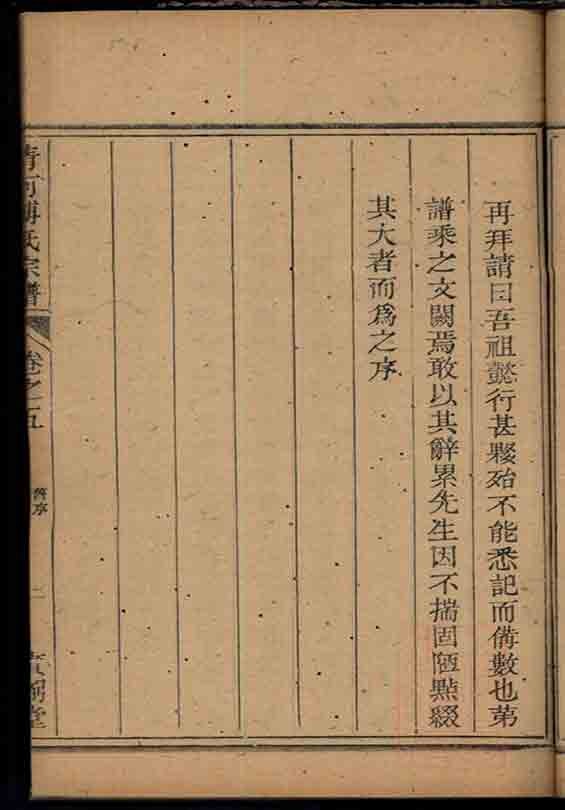 再拜請曰吾祖懿行甚夥殆不能悉記而備數也第
譜乘之文闕焉敢以其辭累先生因不揣固陋點綴
其大者而爲之序
清河傅氏宗譜
卷之五
舊序
二
堂